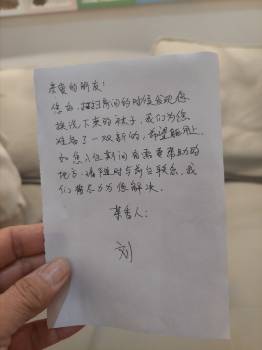 亲爱的朋友：
您好，打扫房间的时候发现您
换洗下来的袜子，我们为您
准备了一双新的，希望能用上
如您入住期间有需要帮助的
地方，请随时与前台联系，我
们将尽力为您解决。
管理人：
刘